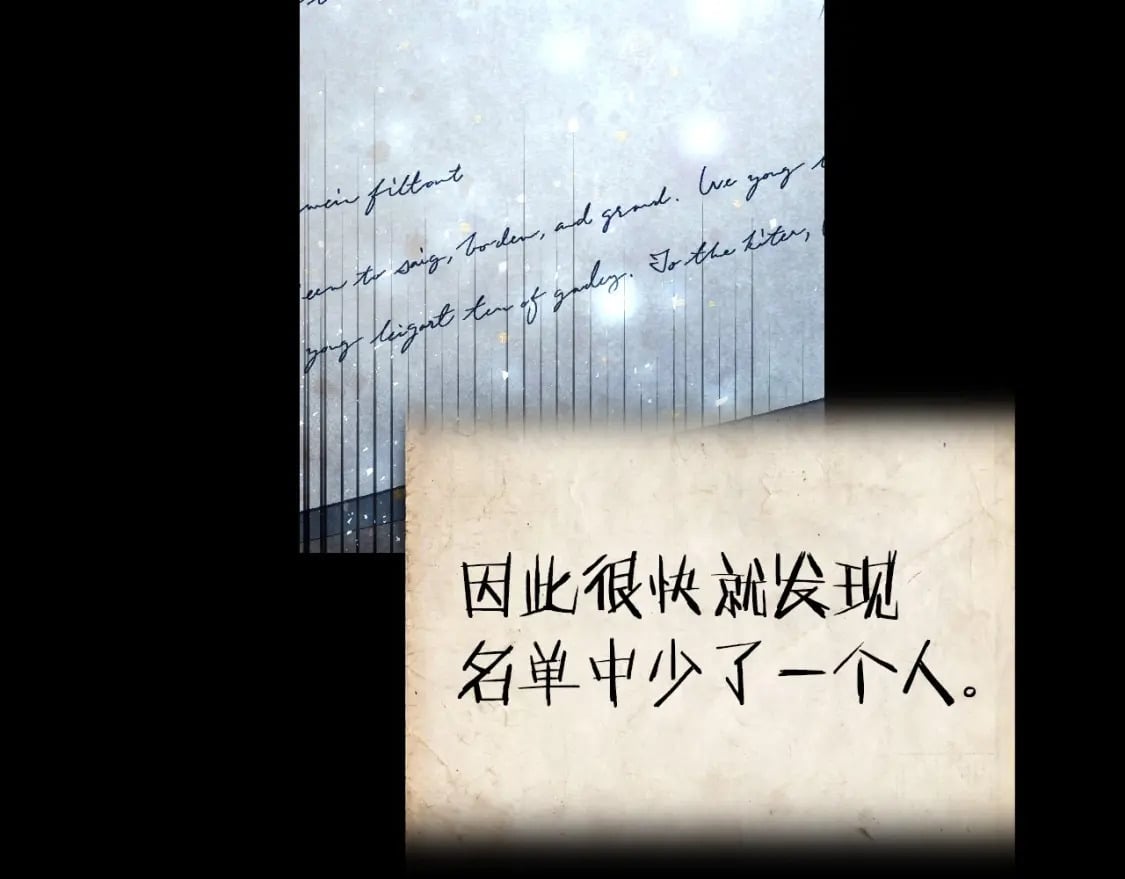 filtont
to saig, boden, and grand. We yong
yong leigart ten of gadey. To the kiter,
因此很快就发现
名单中少了一个人。